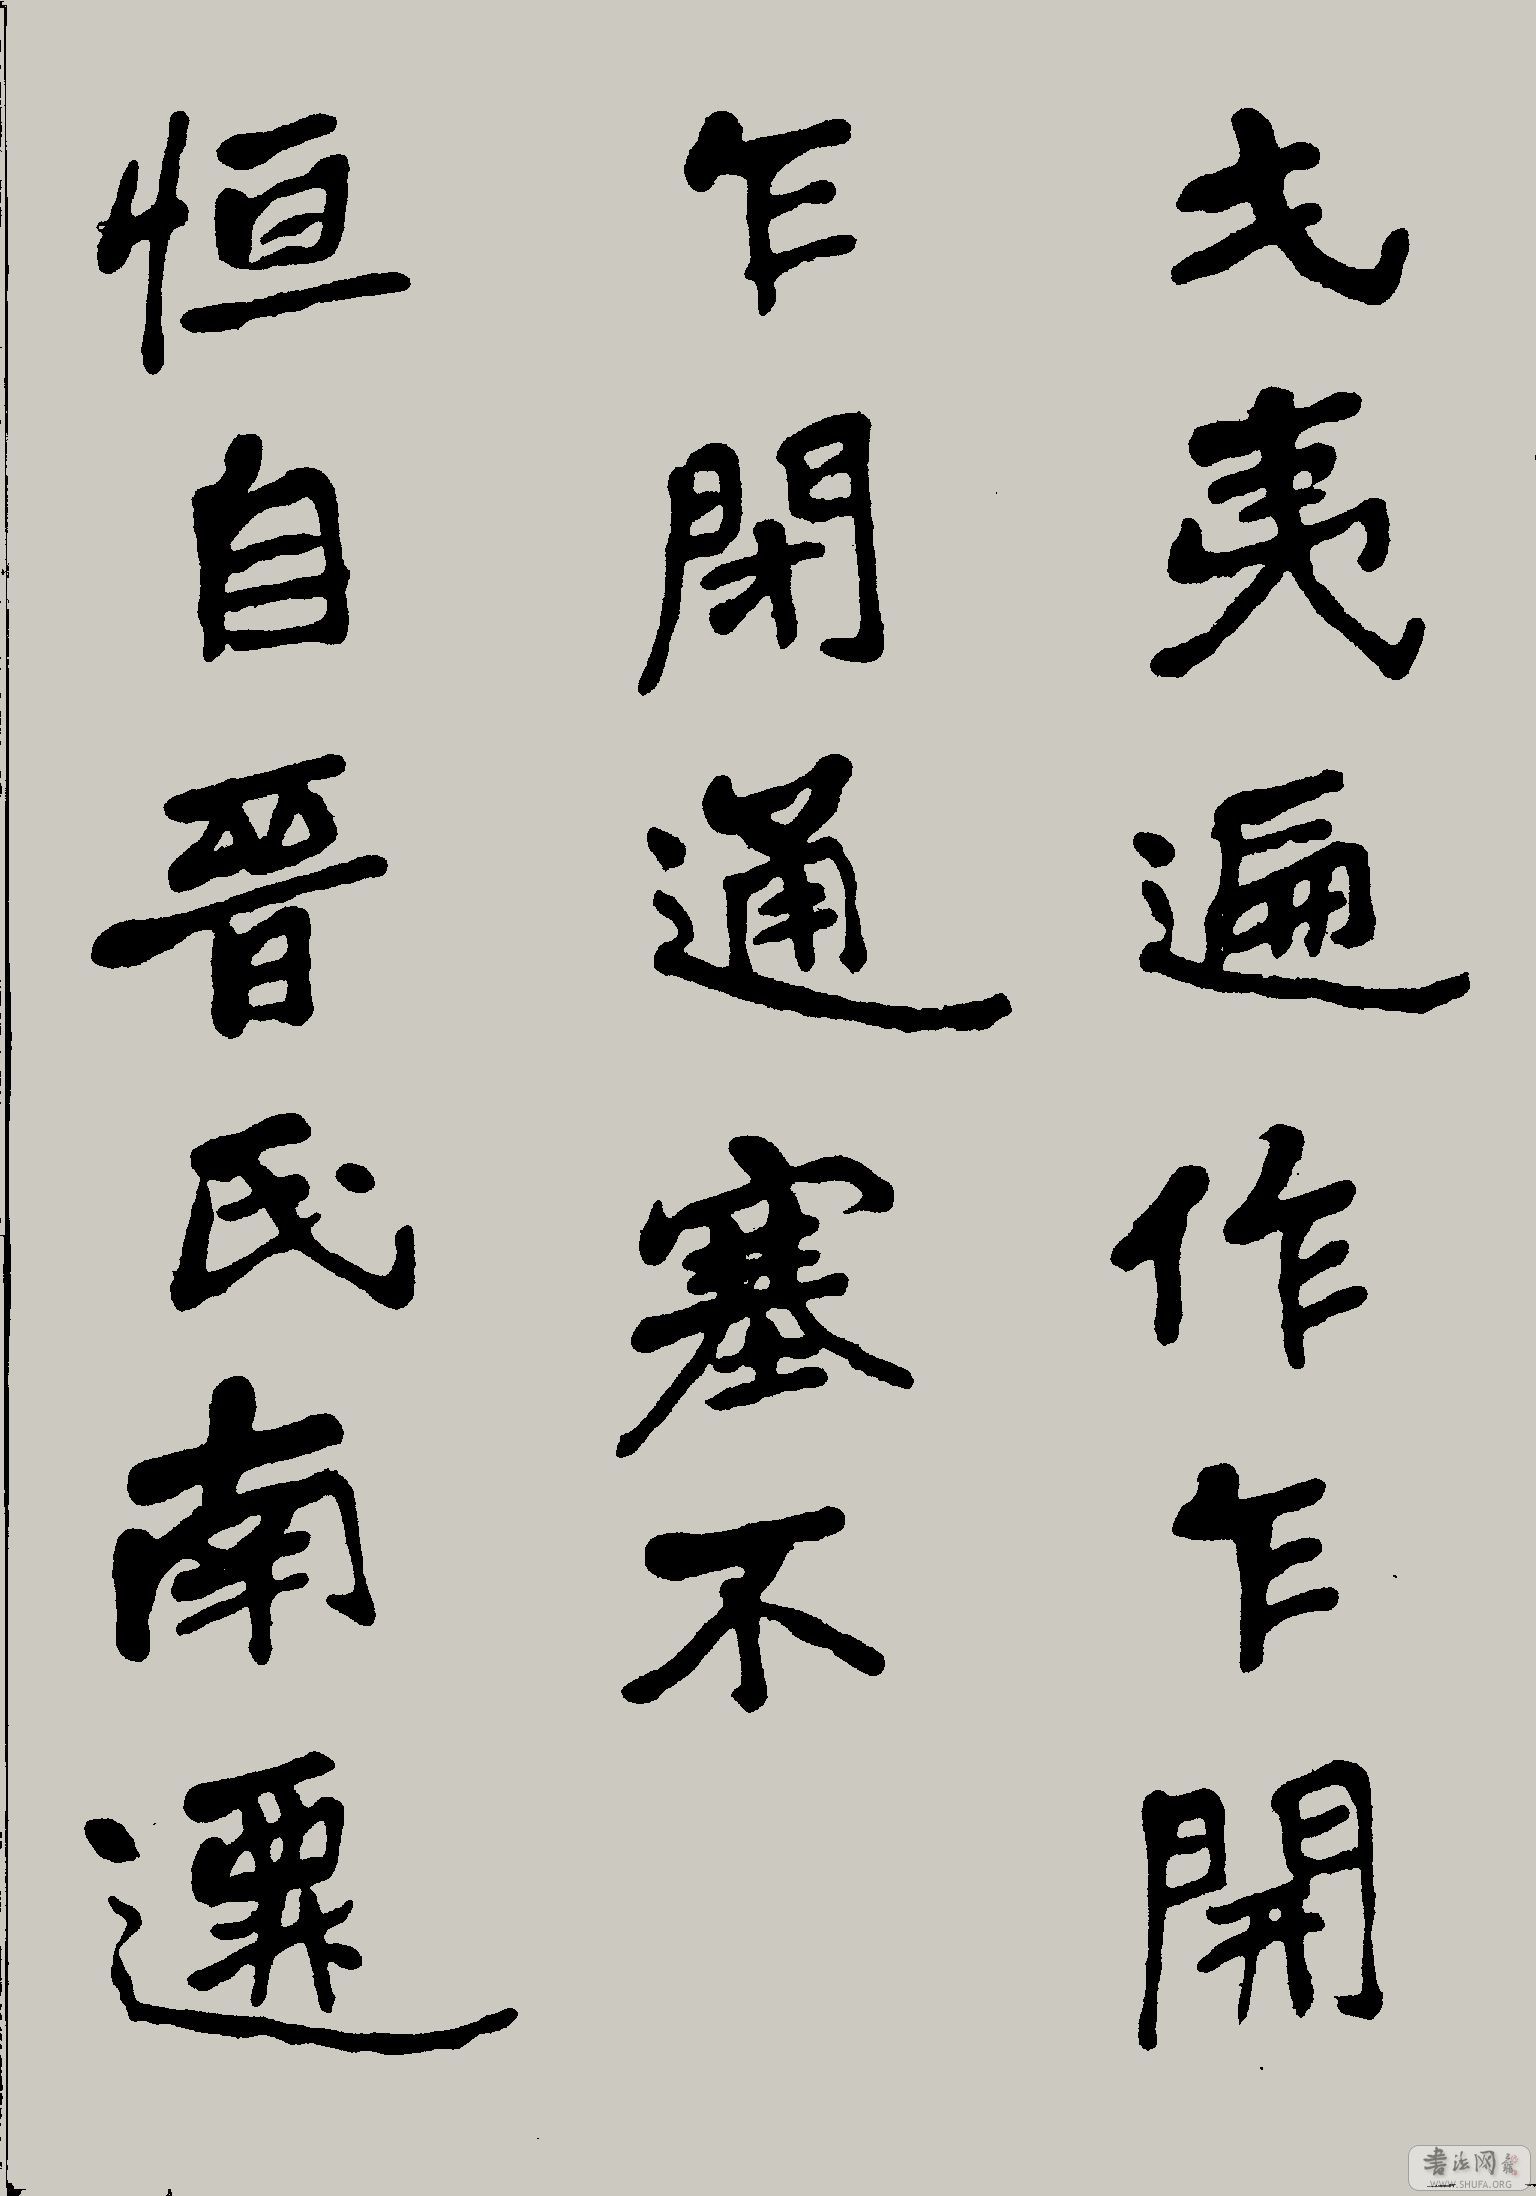 戎夷遞作乍開
乍閉通塞不
恒自晉氏南遷
書法网
WWW.SHUFA.ORG